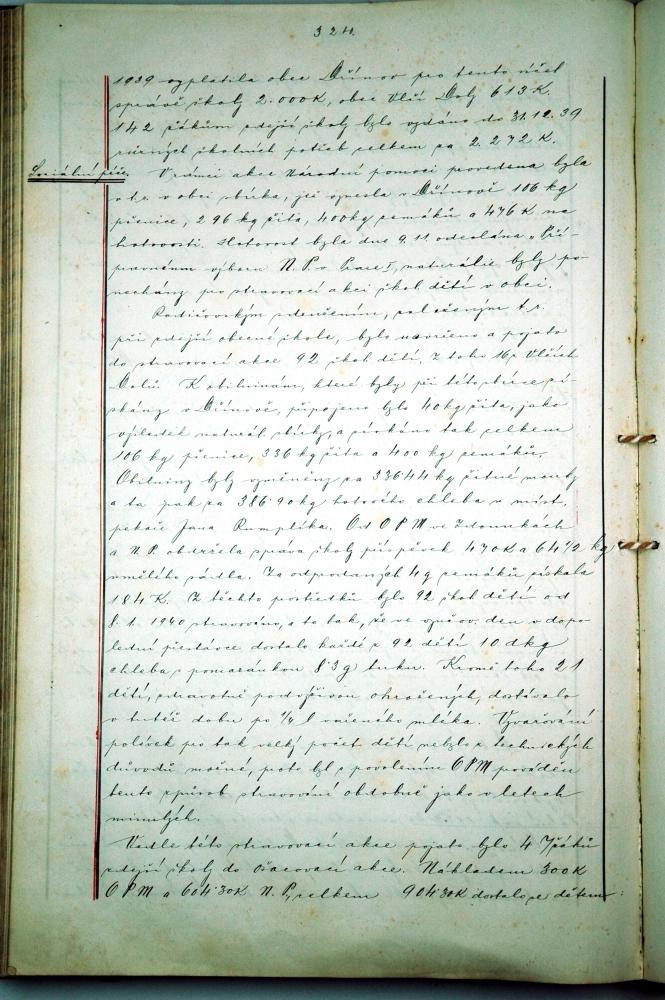 324.
1939 vyplatila obec Dřínov pro tento účel
správě školy 2.000K, obec Vlčí Doly 613K.
142 žákům zdejší školy bylo vydáno do 31.12.39
různých školních potřeb celkem za 2.272K.
Sociální péče. V rámci akce Národní pomoci provedena byla
v obci sbírka, jež vynesla v Dřínově 106 kg
pšenice, 296 kg žita, 400kg zemáků a 476 K na
hotovosti. Hotovost byla dne 9.11. odeslána „Pří-
pravnému výboru N.P. v Praze I, naturálie byly po-
nechány pro stravovací akci škol. dětí v obci.
Rodičovským sdružením, založeným t.r.
při zdejší obecné škole, bylo navrženo a pojato
do stravovací akce 92 škol. dětí, z toho 16 z Vlčích
Dolů. K obilninám, které byly při této sbírce zí-
skány v Dřínově, připojeno bylo 40kg žita, jako
výsledek naturál. sbírky, a získáno tak celkem
106 kg pšenice, 336 kg žita a 400 kg zemáků.
Obilniny byly vyměněny za 336.44 kg žitné mouky
a ta pak za 386.90kg hotového chleba u míst.
pekaře Jana Rumplíka. Od OPM ve Zdounkách
a N.P. obdržela správa školy příspěvek 470K a 64 1/2 kg
umělého sádla. Za odprodaných 4q zemáků získala
184 K. Z těchto prostředků bylo 92 škol. dětí od
8.1. 1940 stravováno, a to tak, že ve vyučov. den v dopo-
lední přestávce dostalo každé z 92 dětí 10 dkg
chleba s pomazánkou 8.3g tuku. Kromě toho 21
dětí, zdravotně pod výživou ohrožených, dostávalo
v tutéž dobu po 1/4 l vařeného mléka. Vyvařování
polévek pro tak velký počet dětí nebylo z technických
důvodů možné, proto byl s povolením OPM prováděn
tento způsob stravování obdobně jako v letech
minulých.
Vedle této stravovací akce pojato bylo 47 žáků
zdejší školy do ošacovací akce. Nákladem 300K
OPM a 604.30K N.P., celkem 904.30K dostalo se dětem: